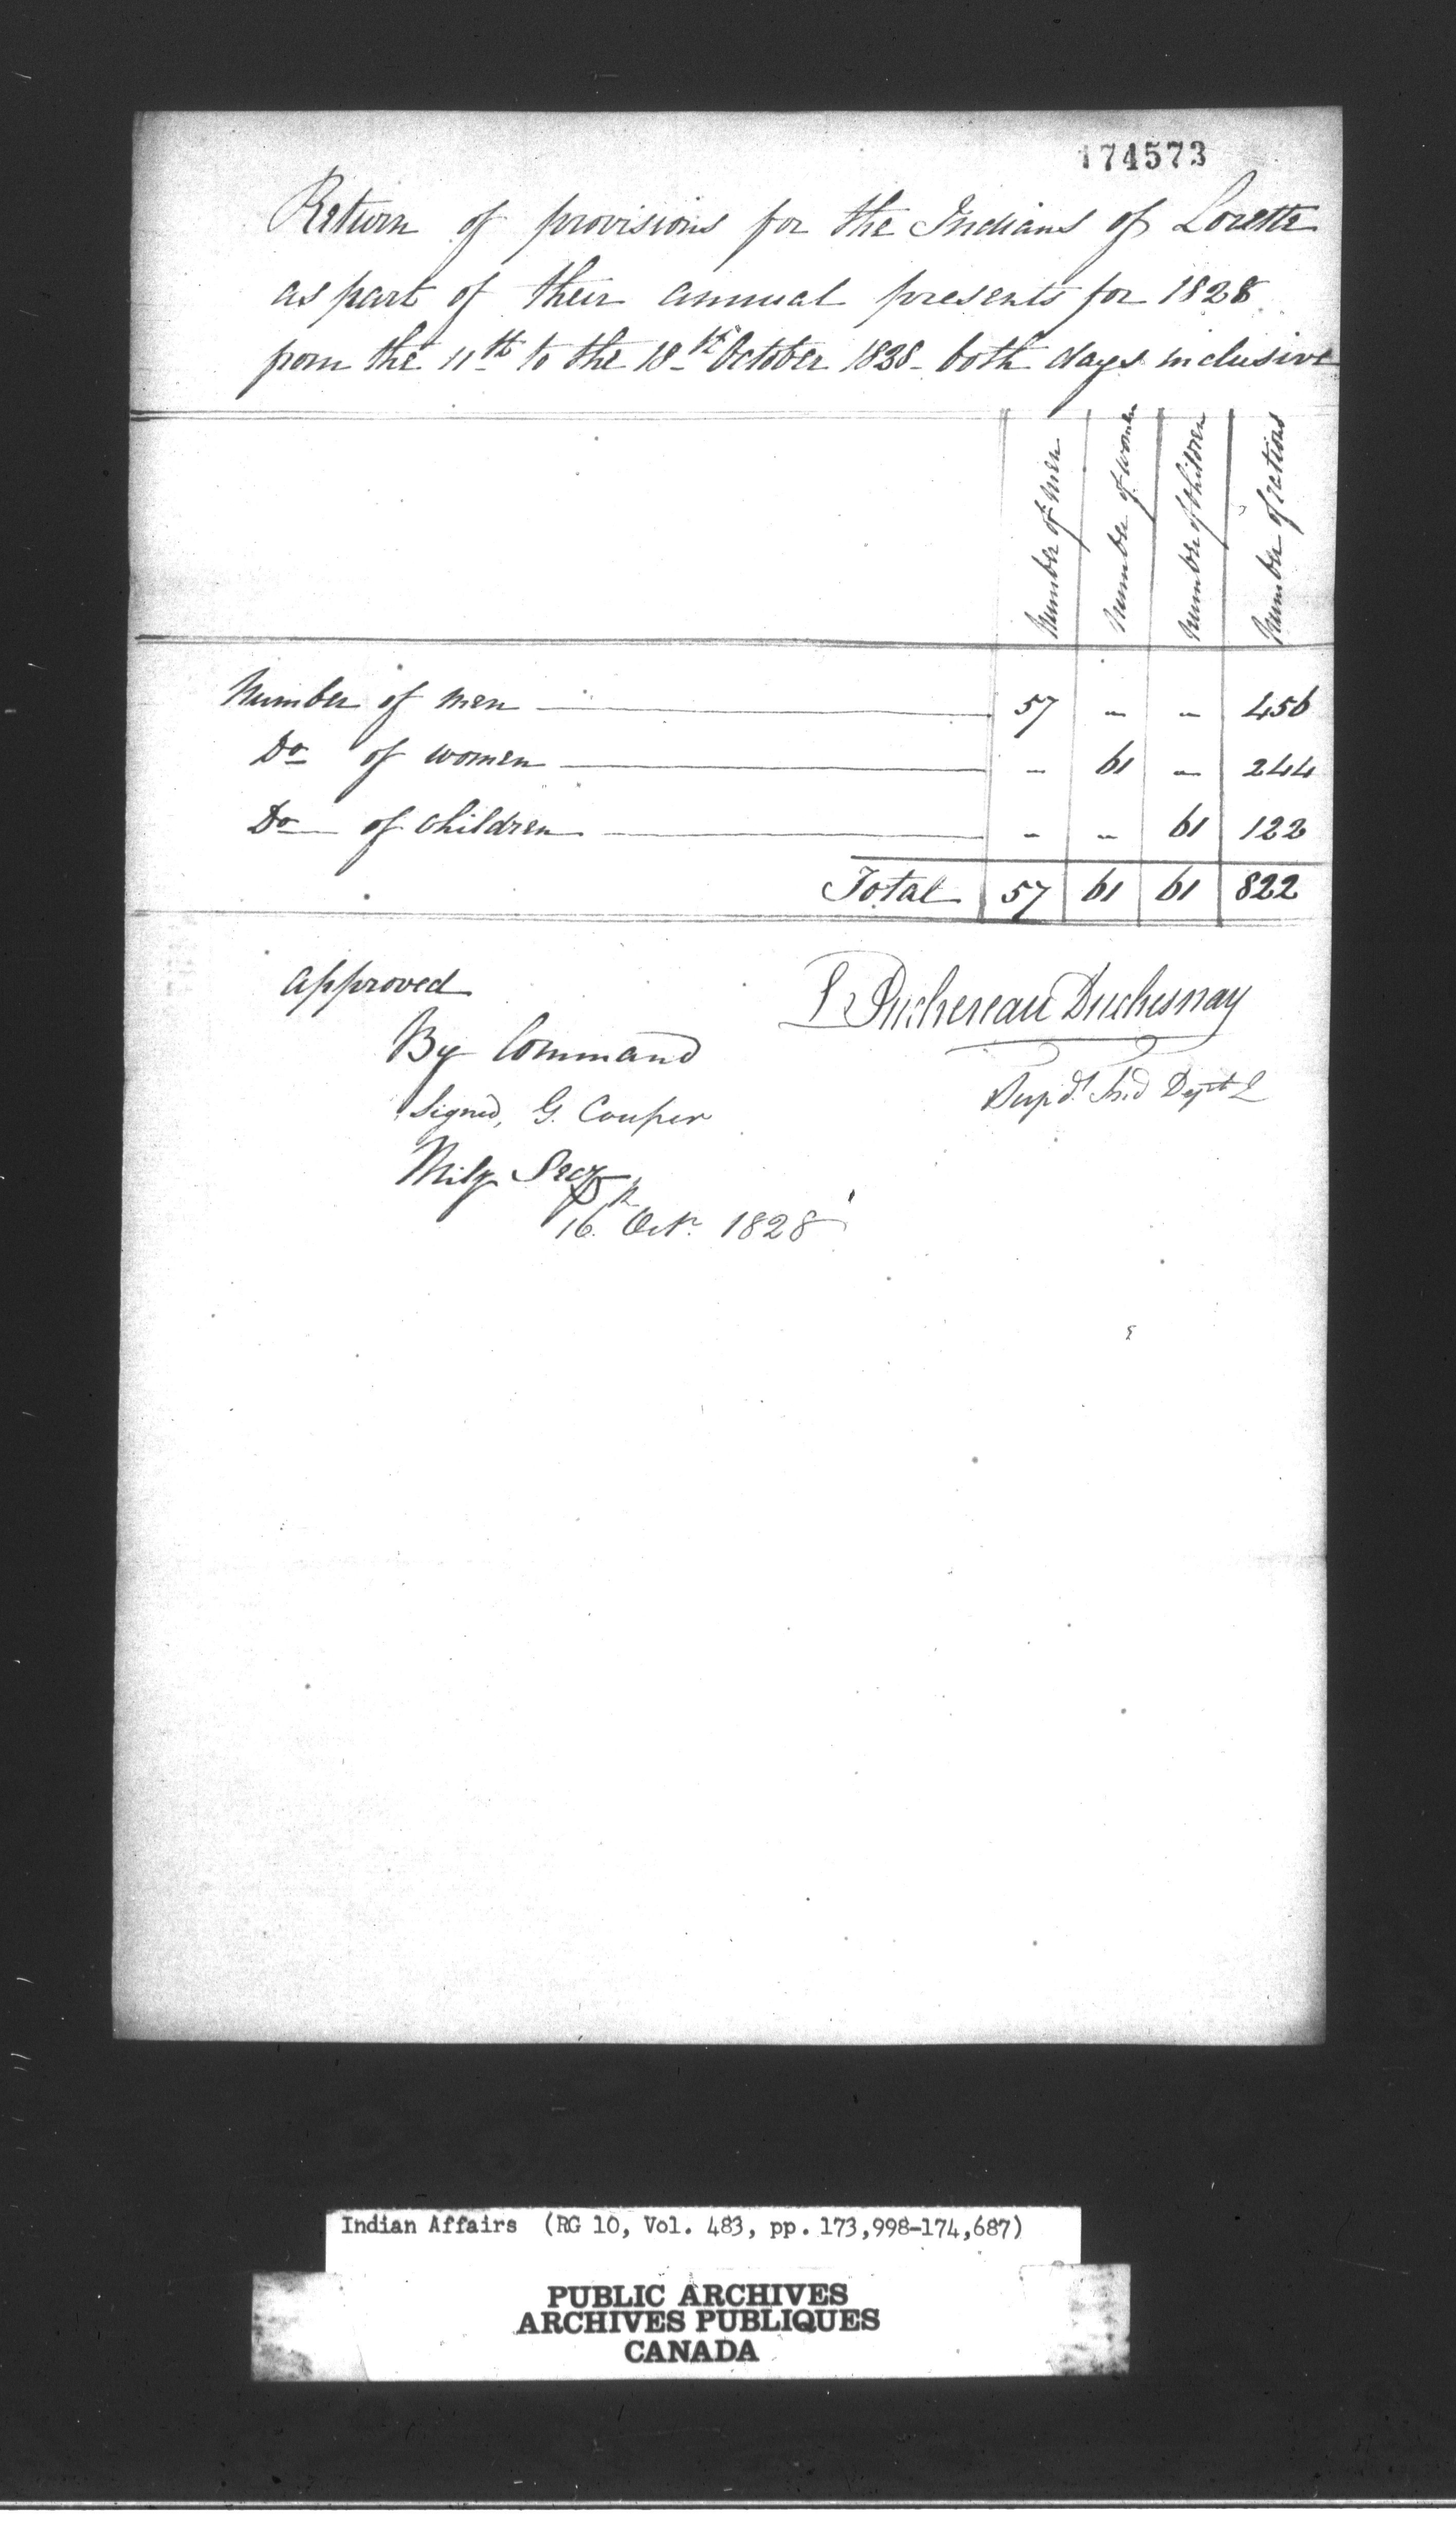 174573
Return of provisions for the Indians of Lorette
as part of their annual presents for 1828
from the 11th to the 18th October 1828 both days inclusive
Number of men
Number of women
Number of children
Number of rations
Number of men 57 - - 456
Do of women - 61 - 244
Do of children - - 61 122
Total 57 61 61 822
approved
By Command
Signed, G. Couper
Mily Secy
16. Octr. 1828
Juchereau Duchesnay
Supdt. Ind Dept
Indian Affairs (RG 10, Vol. 483, pp. 173,998-174,687)
PUBLIC ARCHIVES
ARCHIVES PUBLIQUES
CANADA